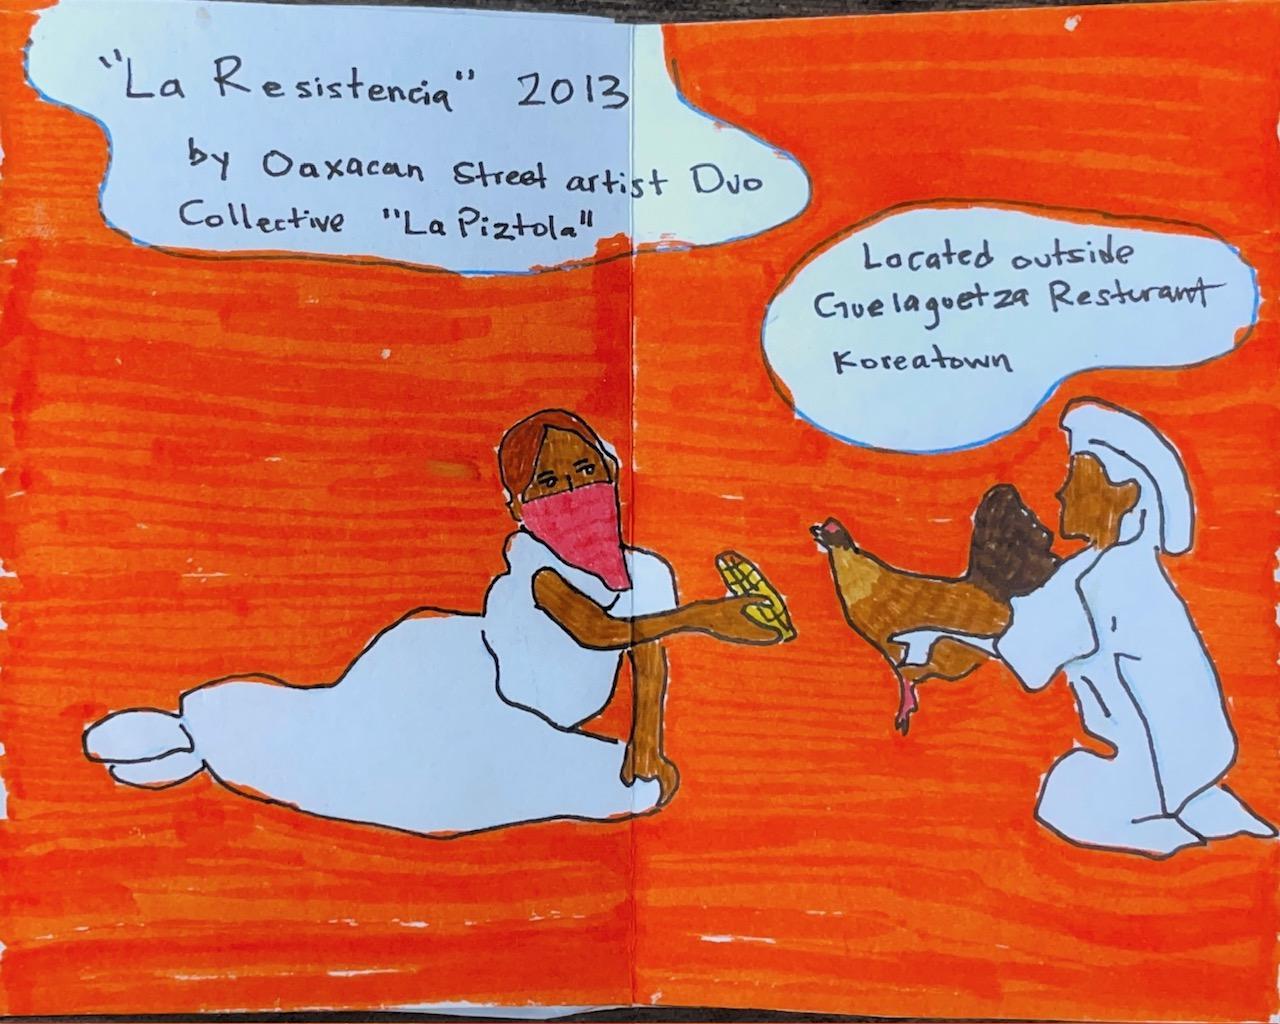 "La Resistencia" 2013
by Oaxacan Street artist Duo
Collective "La Piztola"
Located outside
Guelaguetza Resturant
Koreatown